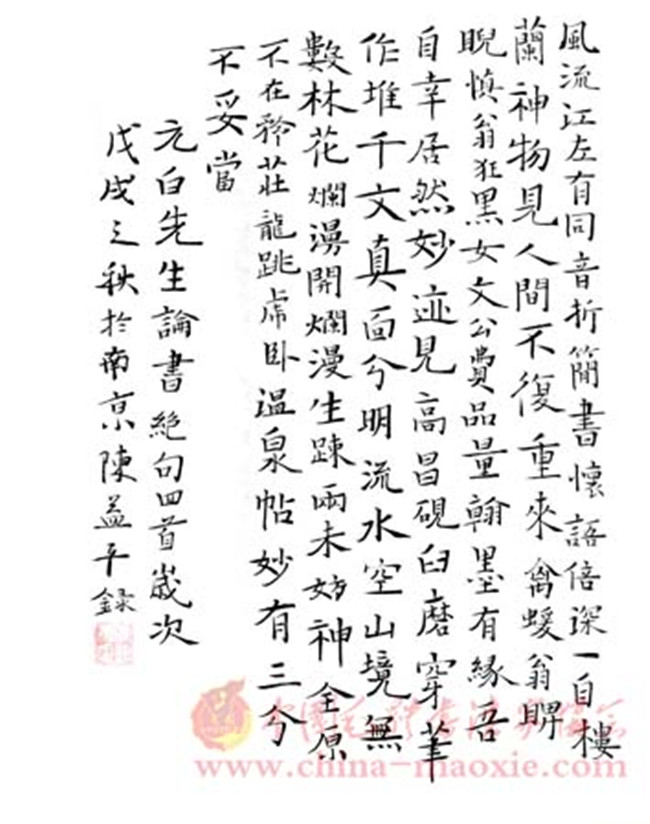 風流江左有同音折簡書懷語倍深一自樓
蘭神物見人間不復重來禽蝯翁睥
睨慎翁狂黑女文公費品量翰墨有緣吾
自幸居然妙迹見高昌硯臼磨穿筆
作堆千文真面分明流水空山境無
數林花爛漫開爛漫生踈兩未妨神全原
不在矜莊龍跳虎卧温泉帖妙有三分
不妥當
元白先生論書絕句四首歲次
戊戌之秋於南京陳益平録
www.china-maoxie.com